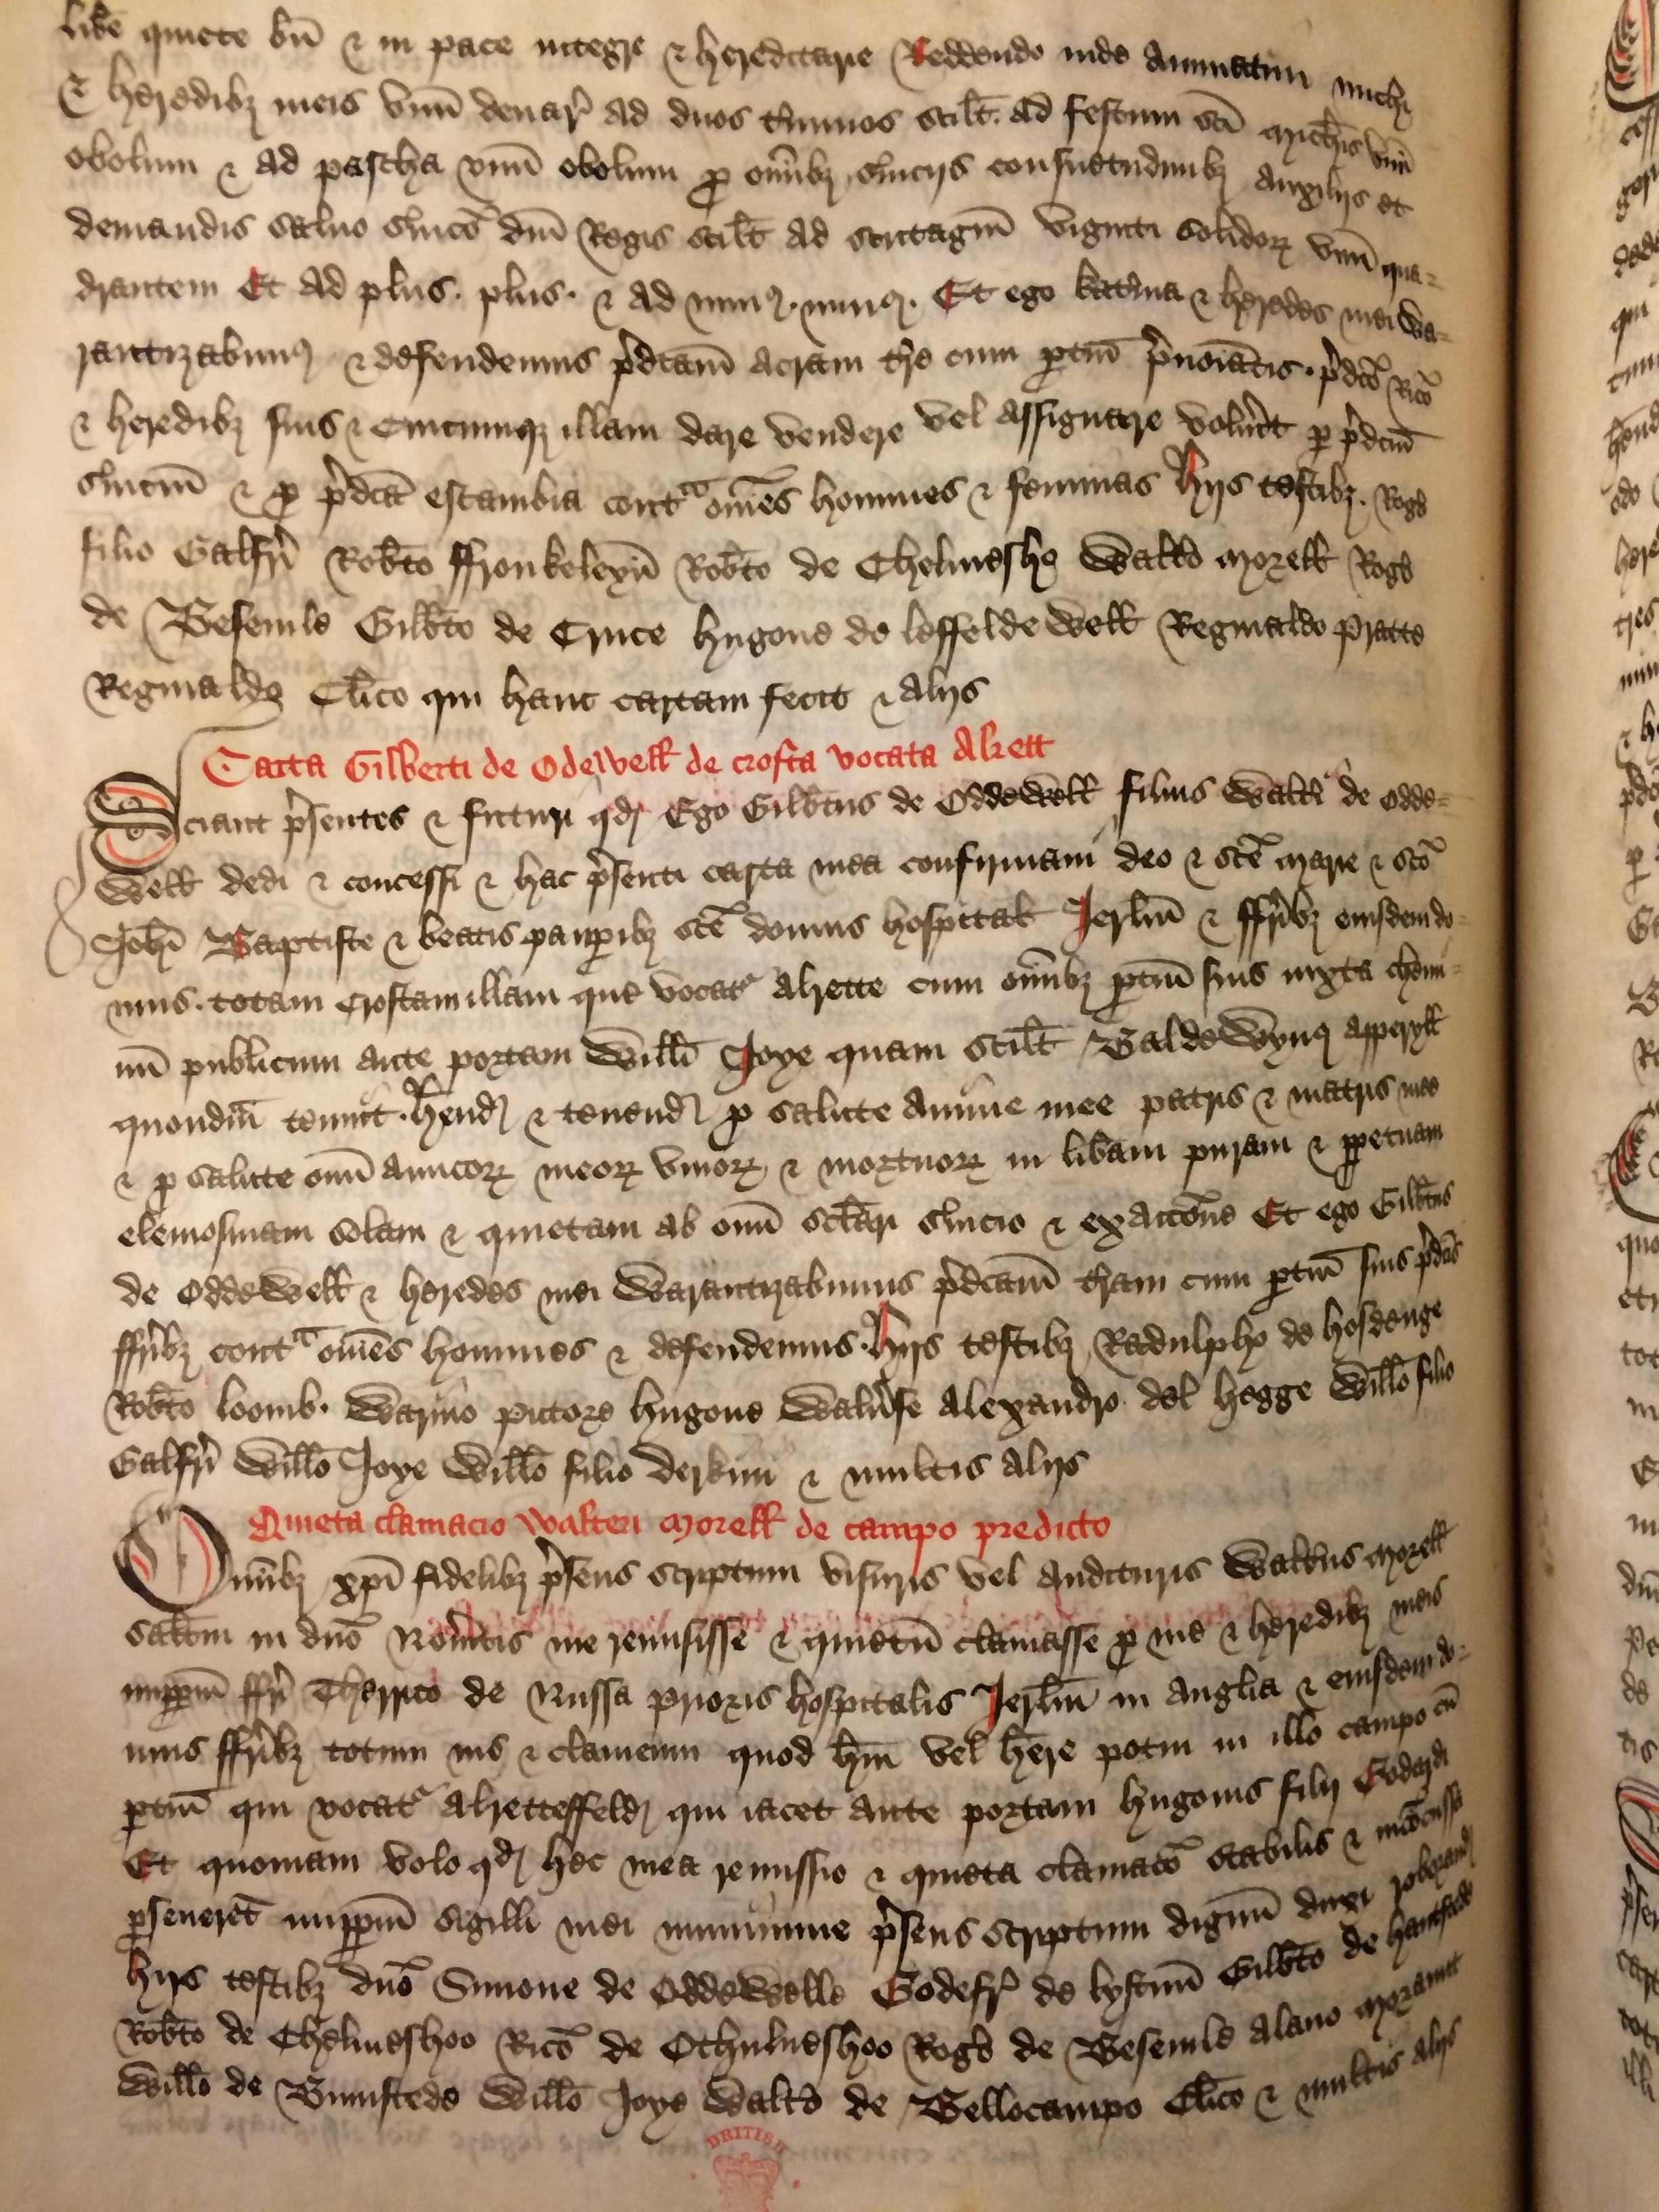 libe quiete bn̄ ⁊ in pace integre ⁊ hereditarie Reddendo inde Annuatim michi
Et heredibꝫ meis vnū denar̄ ad duos t̄minos scilt̄. ad festum sc̄i Mich̄is vnū
obolum ⁊ ad pascha vnū obolum ꝓ om̄ibꝫ s̄uicijs consuetudinibꝫ Auxilijs et
demandis saluo s̄uicō dn̄i Regis scilt̄ Ad scutagiū viginti solidoꝝ vnū qua-
drantem Et Ad plus. plus. ⁊ ad minꝰ. minꝰ. Et ego kat̄ina ⁊ heredes mei Wa-
rantizabimꝰ ⁊ defendemus p̄dc̄am Acram t̄re cum ꝑtin̄ p̄noīatis. p̄dc̄o Ric̄o
⁊ heredibꝫ suis ⁊ Cuicumqꝫ illam dare vendere vel assignare volūit ꝑ p̄dc̄m
s̄uiciū ⁊ ꝓ p̄dc̄a escambia contᵃ om̄es homines ⁊ feminas hijs testibꝫ. Rogo
filio Galfr̄i Rob̄to ffronkeleyn̄ Rob̄to de Chelmesho Walt̄o Morell Rogo
de Besemle Gilb̄to de Cruce hugone de leffeldewell Reginaldo Pratte
Reginaldo Cl̄ico qui hanc cartam fecit ⁊ alijs
Carta Gilberti de Odewell de crofta vocata Alrett
Sciant p̄sentes ⁊ futuri qd̄ Ego Gilb̄tus de Oddewell filius Walt̄i de Odde-
well dedi ⁊ concessi ⁊ hac p̄senti carta mea confirmaui deo ⁊ sc̄e Marie ⁊ sc̄o
Joh̄i Baptiste ⁊ beatis pauꝑibꝫ sc̄e domus hospital Jerlm̄ ⁊ ffr̄ibꝫ eiusdem do-
mus. totam Croftam illam que vocatᵉ Alrette cum om̄ibꝫ ꝑtin̄ suis iuxta chemi-
nū publicum ante portam Will̄i Joye quam scilt̄ Baldewynꝰ Apperyll
quond̄m tenuit. h̄end̄ ⁊ tenend̄ ꝓ salute Anime mee patris ⁊ matris mee
⁊ ꝓ salute om̄i amicoꝝ meoꝝ viuoꝝ ⁊ mortuoꝝ in lib̄am puram ⁊ ꝑpetuam
elemosinam solam ⁊ quietam ab om̄i sclāri s̄uicio ⁊ exaccōne Et ego Gilb̄tus
de Oddewell ⁊ heredes mei Warantizabimus p̄dc̄am t̄ram cum ꝑtin̄ suis p̄dc̄is
ffr̄ibꝫ contᵃ om̄es homines ⁊ defendemus. hijs testibꝫ Radulpho de hosdenge
Rob̄to loomb. Warino pictore hugone Waln̄se Alexandro del hegge Will̄o filio
Galfr̄i Will̄o Joye Will̄o filio Derkini ⁊ multis alijs
Quieta clamacio Walteri Morell de campo predicto
Omībꝫ xp̄i fidelibꝫ p̄sens scriptum visuris vel Audituris Walt̄us Morell
salt̄m in dn̄o Nou̅itis me remisisse ⁊ quietū clamasse ꝓ me ⁊ heredibꝫ meis
imꝑꝑm̄ ffr̄i Therrico de Nussa prioris hospitalis Jerlm̄ in Anglia ⁊ eiusdem do-
mus ffr̄ibꝫ totum ius ⁊ clameum quod h̄ui vel h̄ere potui in illo campo cū
ꝑtin̄ qui vocatᵉ Alretteffeld̄ qui iacet ante portam hugonis filij Godardi
Et quoniam volo qd̄ hec mea remissio ⁊ quieta clamacō stabilis ⁊ incōcussa
ꝑseueret imꝑꝑm̄ sigilli mei munimine p̄sens scriptum dignū duxi roborand̄
hijs testibꝫ dn̄o Simone de Oddewelle Godefr̄ de lystun̄ Gilb̄to de hantfeld
Rob̄to de Chelmeshoo Ric̄o de Othulueshoo Rogo de Besemle Alano Morant
Will̄o de Bumstede Will̄o Joye Walt̄o de Bellocampo Cl̄ico ⁊ multis alijs
BRITISH